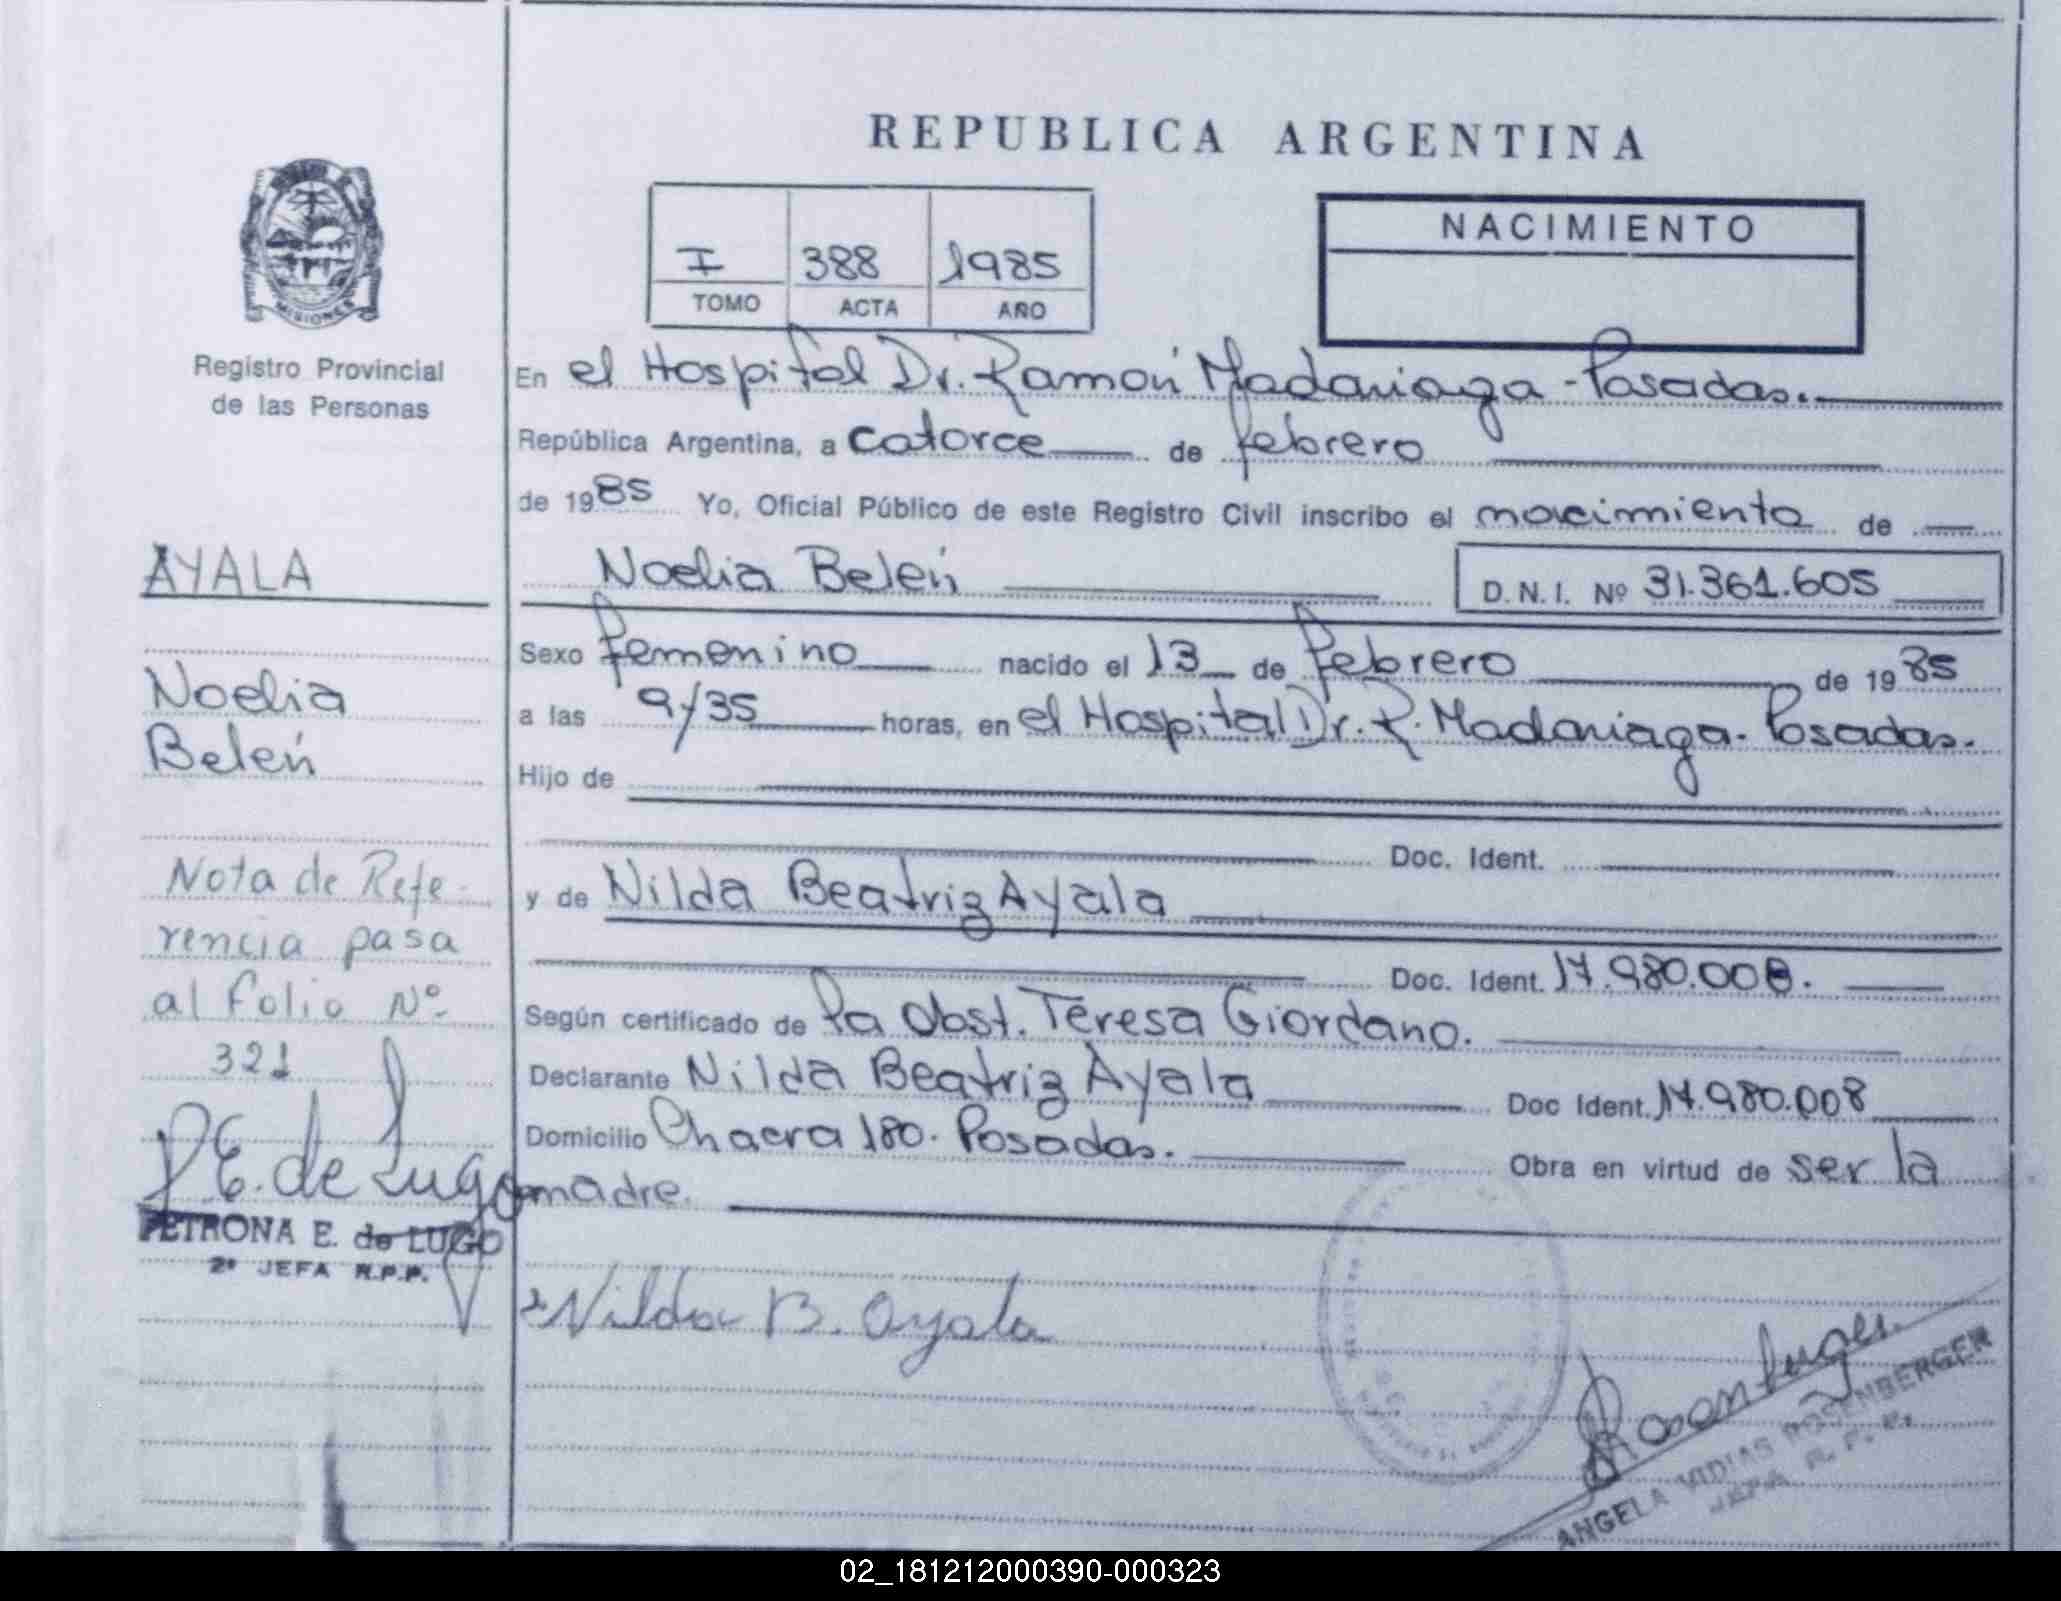 REPUBLICA ARGENTINA
MISIONES
Registro Provincial
de las Personas
I 388 1985
TOMO ACTA AÑO
NACIMIENTO
En el Hospital Dr. Ramón Madariaga - Posadas.
República Argentina, a catorce de febrero
de 1985 Yo, Oficial Público de este Registro Civil inscribo el nacimiento de
Noelia Belén D.N.I. Nº 31.361.605
Sexo femenino nacido el 13 de febrero de 1985
a las 9/35 horas, en el Hospital Dr. R. Madariaga. Posadas.
Hijo de
Doc. Ident.
y de Nilda Beatriz Ayala
Doc. Ident. 17.980.008.
Según certificado de la Obst. Teresa Giordano.
Declarante Nilda Beatriz Ayala Doc Ident. 17.980.008
Domicilio Chacra 180. Posadas. Obra en virtud de ser la
madre.
Nilda B. Ayala
AYALA
Noelia
Belén
Nota de Refe-
rencia pasa
al folio Nº
321
P.E. de Lugo
PETRONA E. de LUGO
2ª JEFA R.P.P.
ANGELA VIDIAS ROSENBERGER
JEFA R. P. P.
02_181212000390-000323